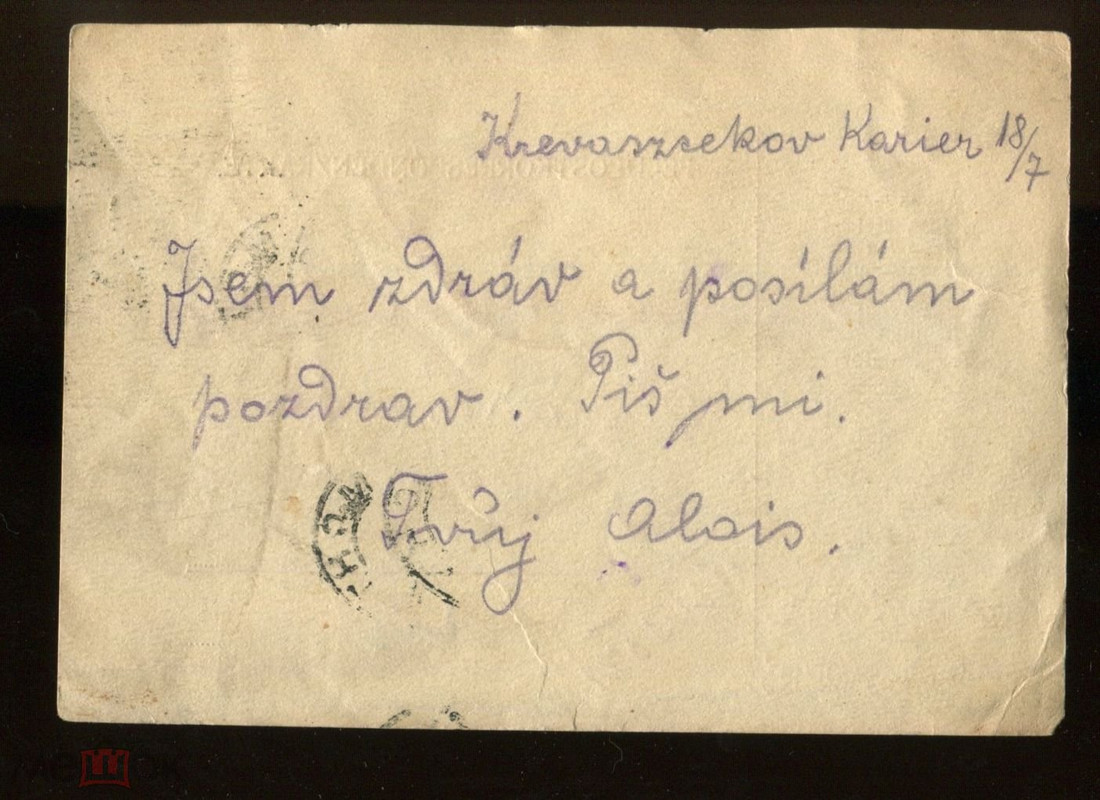 Krevaszsekov Karier 18/7
Jsem zdráv a posílám
pozdrav. Piš mi.
Tvůj Alois.